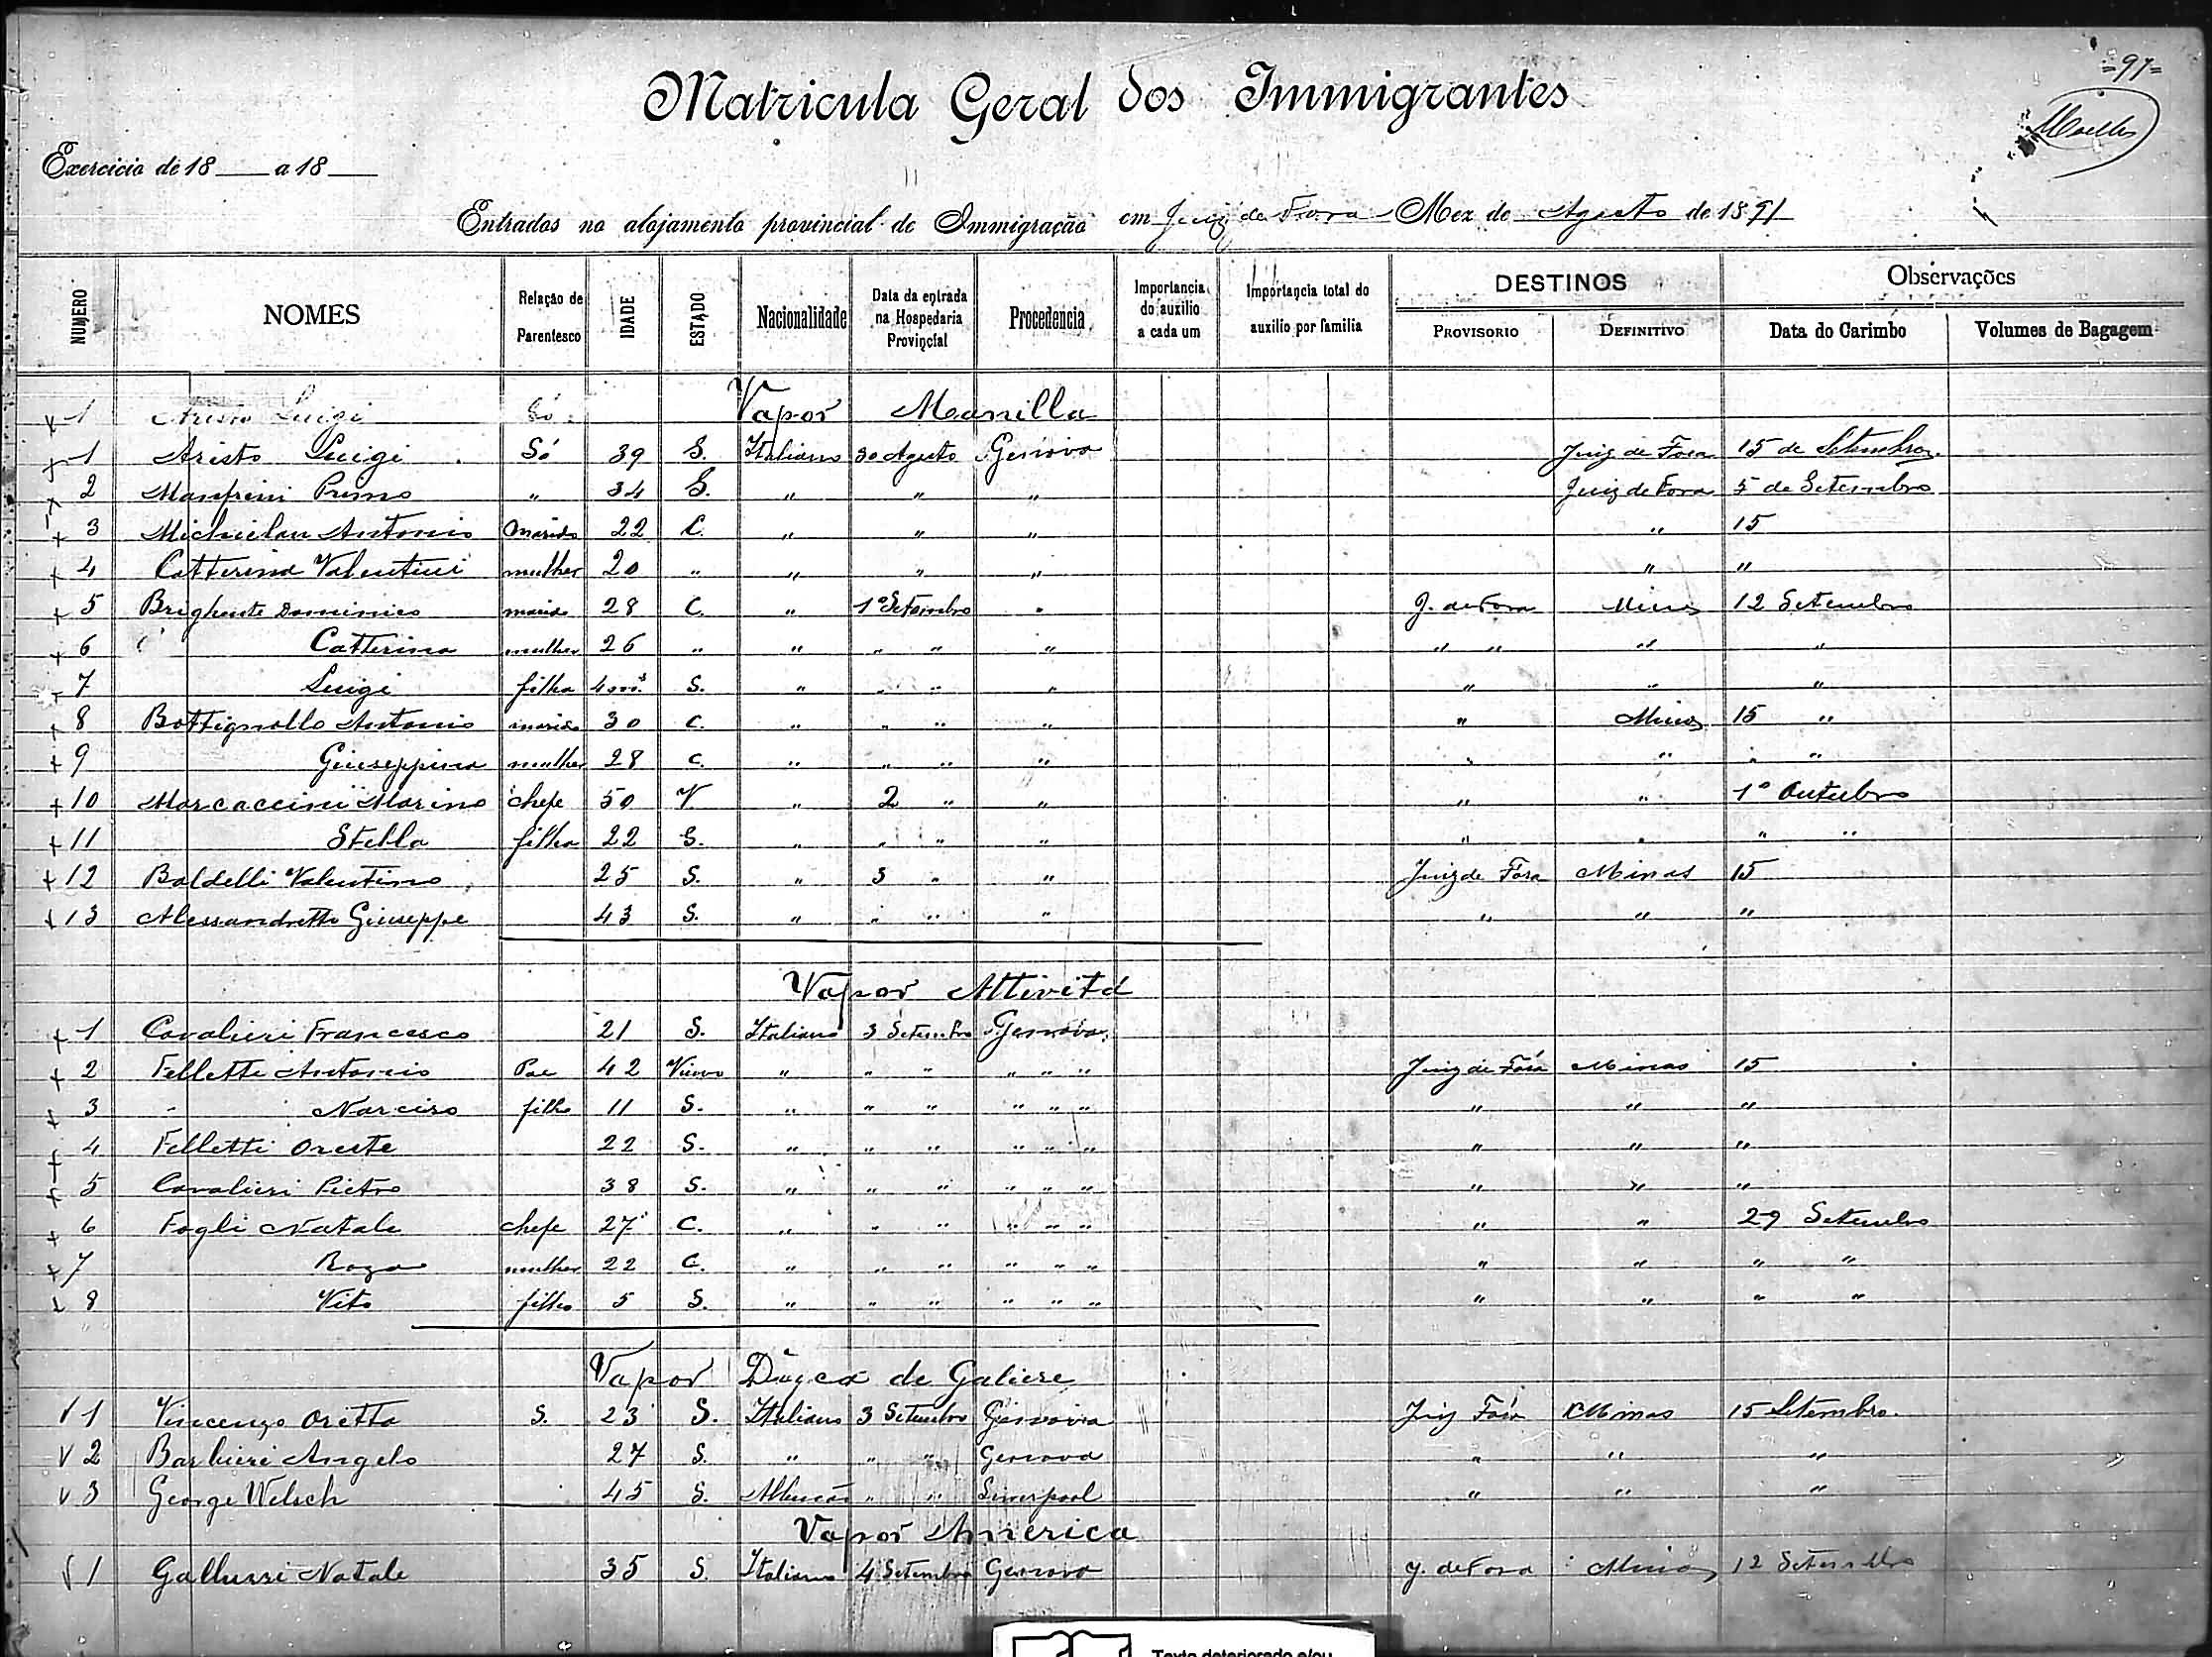 =97=
Matricula Geral dos Immigrantes
Exercicio de 18 a 18
Entrados no alojamento provincial de Immigração em Juiz de Fora Mez de Agosto de 1891
NUMERO NOMES Relação de Parentesco IDADE ESTADO Nacionalidade Data da entrada na Hospedaria Provincial Procedencia Importancia do auxilio a cada um Importancia total do auxilio por familia DESTINOS PROVISORIO DEFINITIVO Observações Data do Carimbo Volumes de Bagagem
Vapor Manilla
x 1 Aristo Luigi Só
x 1 Aristo Luigi Só 39 S. Italiano 30 Agosto Genova Juiz de Fora 15 de Setembro
x 2 Manfrini Primo " 34 S. " " " Juiz de Fora 5 de Setembro
+ 3 Michielan Antonio marido 22 C. " " " " 15
+ 4 Catterina Valentini mulher 20 " " " " " "
+ 5 Brighente Dominico marido 28 C. " 1º Setembro " J. de Fora Minas 12 Setembro
+ 6 " Catterina mulher 26 " " " " " " " " "
+ 7 Luigi filho 4 m.s S. " " " " " " "
+ 8 Bottignollo Antonio marido 30 C. " " " " " Minas 15 "
+ 9 Giuseppina mulher 28 C. " " " " " " " "
+ 10 Marcaccini Marino chefe 50 V. " 2 " " " " 1º Outubro
+ 11 Stella filha 22 S. " " " " " " " "
+ 12 Baldelli Valentino 25 S. " 3 " " Juiz de Fora Minas 15
+ 13 Alessandretti Giuseppe 43 S. " " " " " " "
Vapor Attività
+ 1 Cavalieri Francesco 21 S. Italiano 3 Setembro Genova
+ 2 Felletti Antonio Pae 42 Viuvo " " " " " " Juiz de Fóra Minas 15
+ 3 " Narciso filho 11 S. " " " " " " " " "
+ 4 Felletti Oreste 22 S. " " " " " " " " "
+ 5 Cavalieri Pietro 38 S. " " " " " " " " "
+ 6 Fogli Natale chefe 27 C. " " " " " " " " 29 Setembro
+ 7 Roza mulher 22 C. " " " " " " " " " "
+ 8 Vito filho 5 S. " " " " " " " " " "
Vapor Duca de Galiere
V 1 Vincenzo Oretta S. 23 S. Italiano 3 Setembro Genova Juiz Fóra Minas 15 Setembro
V 2 Barbieri Angelo 27 S. " " " Genova " " "
V 3 George Welsch 45 S. Allemão " " Liverpool " " "
Vapor America
V 1 Gallussi Natale 35 S. Italiano 4 Setembro Genova J. de Fora Minas 12 Setembro
Texto deteriorado e/ou